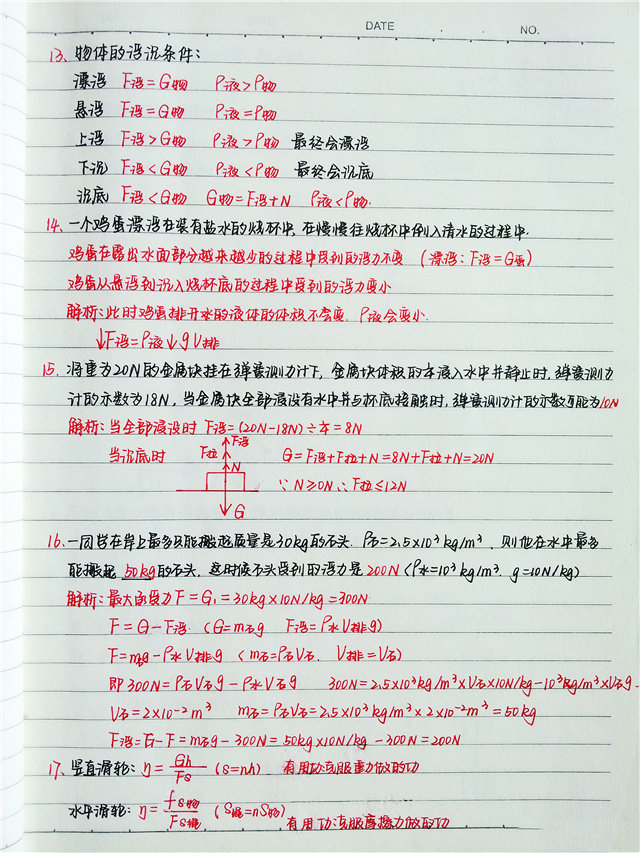 DATE NO.
13、物体的浮沉条件：
漂浮 F浮=G物 ρ液>ρ物
悬浮 F浮=G物 ρ液=ρ物
上浮 F浮>G物 ρ液>ρ物 最终会漂浮
下沉 F浮<G物 ρ液<ρ物 最终会沉底
沉底 F浮<G物 G物=F浮+N ρ液<ρ物.
14、一个鸡蛋漂浮在装有盐水的烧杯中，在慢慢往烧杯中倒入清水的过程中.
鸡蛋在露出水面部分越来越少的过程中受到的浮力不变 (漂浮：F浮=G蛋)
鸡蛋从悬浮到沉入烧杯底的过程中受到的浮力变小
解析：此时鸡蛋排开水的液体的体积不会变，ρ液会变小.
↓F浮=ρ液↓gV排
15、将重为20N的金属块挂在弹簧测力计下，金属块体积的1/4浸入水中并静止时，弹簧测力
计的示数为18N，当金属块全部浸没有水中并与杯底接触时，弹簧测力计的示数可能为10N
解析：当全部浸没时 F浮=(20N-18N)÷1/4=8N
当沉底时 F浮 F拉 N G G=F浮+F拉+N=8N+F拉+N=20N
∵N≥0N ∴F拉≤12N
16、一同学在岸上最多只能搬起质量是30kg的石头，ρ石=2.5×10³kg/m³，则他在水中最多
能搬起 50kg的石头，这时候石头受到的浮力是200N (ρ水=10³kg/m³. g=10N/kg)
解析：最大承受力F=G₁=30kg×10N/kg=300N
F=G-F浮 (G=m石g F浮=ρ水V排g)
F=m石g-ρ水V排g (m石=ρ石V石. V排=V石)
即300N=ρ石V石g-ρ水V石g 300N=2.5×10³kg/m³×V石×10N/kg-10³kg/m³×V石g
V石=2×10⁻²m³ m石=ρ石V石=2.5×10³kg/m³×2×10⁻²m³=50kg
F浮=G-F=m石g-300N=50kg×10N/kg-300N=200N
17、竖直滑轮：η=Gh/Fs (s=nh) 有用功克服重力做的功
水平滑轮：η=fs物/Fs绳 (S绳=nS物) 有用功克服摩擦力做的功